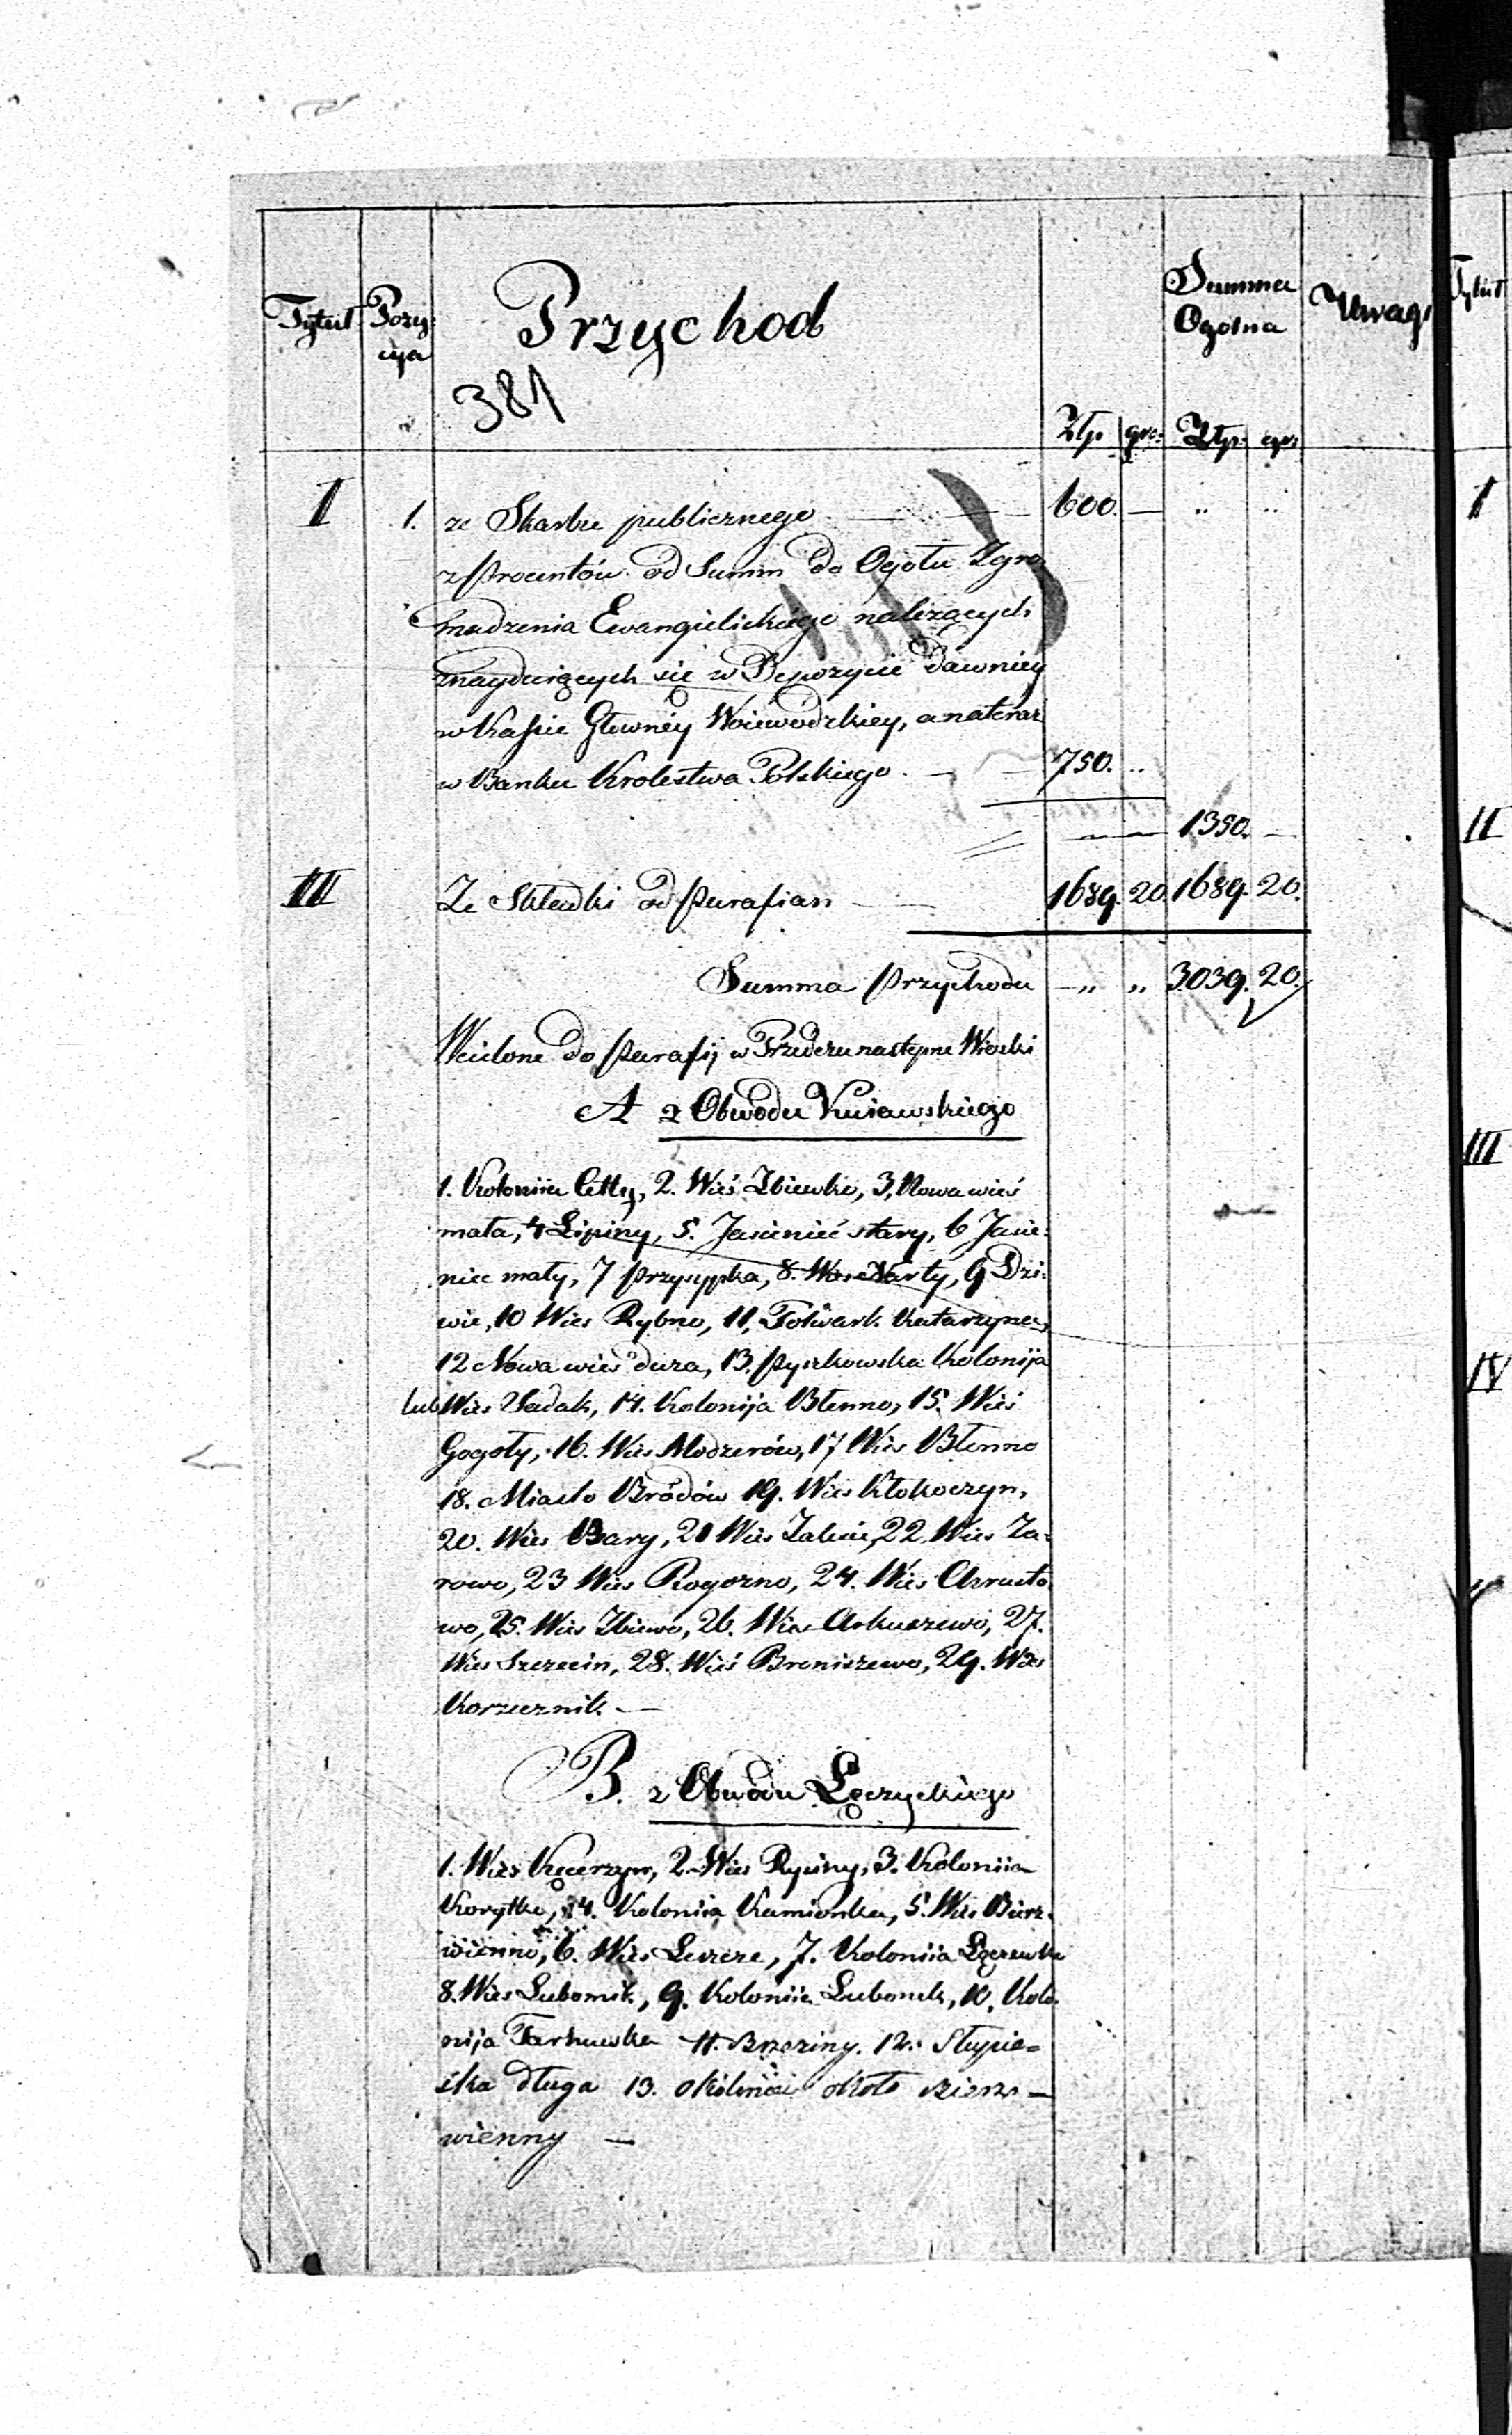 Tytuł Pozy- Przychod Summa Uwagi Tytuł
cya Ogólna
381
Złp gr: Złp: gr:
I 1. ze Skarbu publicznego — 600. — „ „ I
z procentów od Summ do Ogołu Zgro
madzenia Ewangielickiego należących
znayduiących się w Depozycie dawniey
w Kassie Głowney Woiewodzkiey, a nateraz
w Banku Krolestwa Polskiego. — 750. „
— — 1350. — II
III Ze Składki od parafian — 1689. 20. 1689. 20.
Summa przychodu — „ „ 3039. 20.
Wcielone do parafij w Przedczu następne Wioski
A z Obwodu Kuiawskiego
III
1. Koloniia Cetty, 2. Wieś Zbiewko, 3, Nowa wieś
mała, 4 Lipiny, 5. Jasieniec stary, 6 Jasie:
niec mały, 7 przysypka, 8. Wieś Narty, 9 Dzi:
wie, 10 Wies Rybno, 11, Folwark Katarzyna,
12 Nowa wieś duza, 13. pyszkowska Kolonija
IV
lub Wies Sadak, 14. Kolonija Błenno, 15. Wieś
Gogoły, 16. Wies Modzerów, 17 Wies Błenno
18. Miasto Brdów 19. Wies Kłokoczyn,
20. Wies Bary, 21 Wies Zakrze, 22, Wies Za-
rowo, 23 Wies Rogozno, 24. Wies Chrusto
wo, 25. Wies Zbiewo, 26. Wies Arkuszewo, 27.
Wies Szczecin, 28. Wieś Broniszewo, 29. Wies
Korzecznik —
B. z Obwodu Łęczyckiego
1. Wies Kęcerzyn, 2. Wies Rysiny, 3. Koloniia
Korytka, 4. Koloniia Kamionka, 5. Wies Bierz-
wienno, 6. Wies Leszcze, 7. Koloniia
8. Wies Lubonik, 9. Koloniia Lubonek, 10. Kolo
nija Tarnuwka 11. Brzeziny. 12. Słupie=
cka długa 13. okolnicai około Bierz—
wienny —